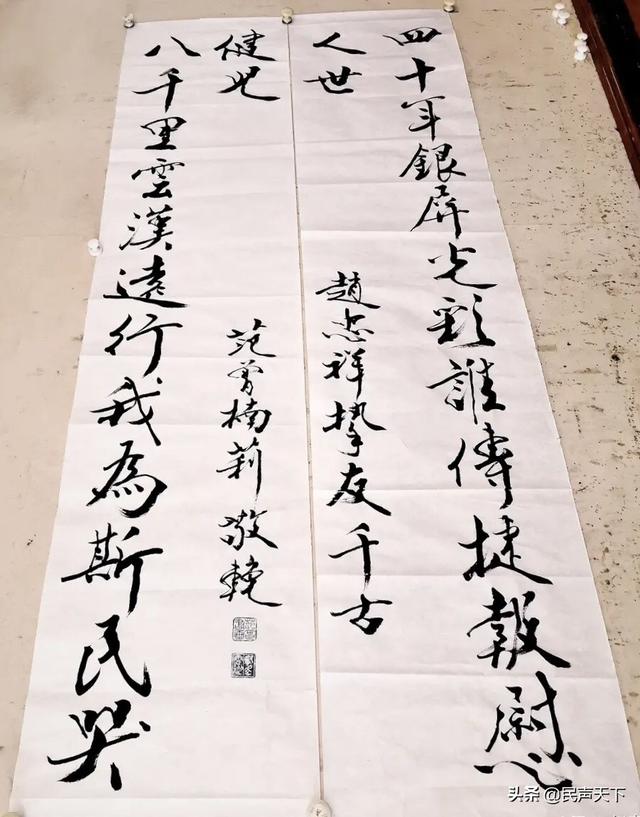 四十年銀屏光彩誰傳捷報慰
人世
趙忠祥摯友千古
八千里雲漢遠行我為斯民哭
健兒
范曾楠莉敬輓
头条 @民声天下